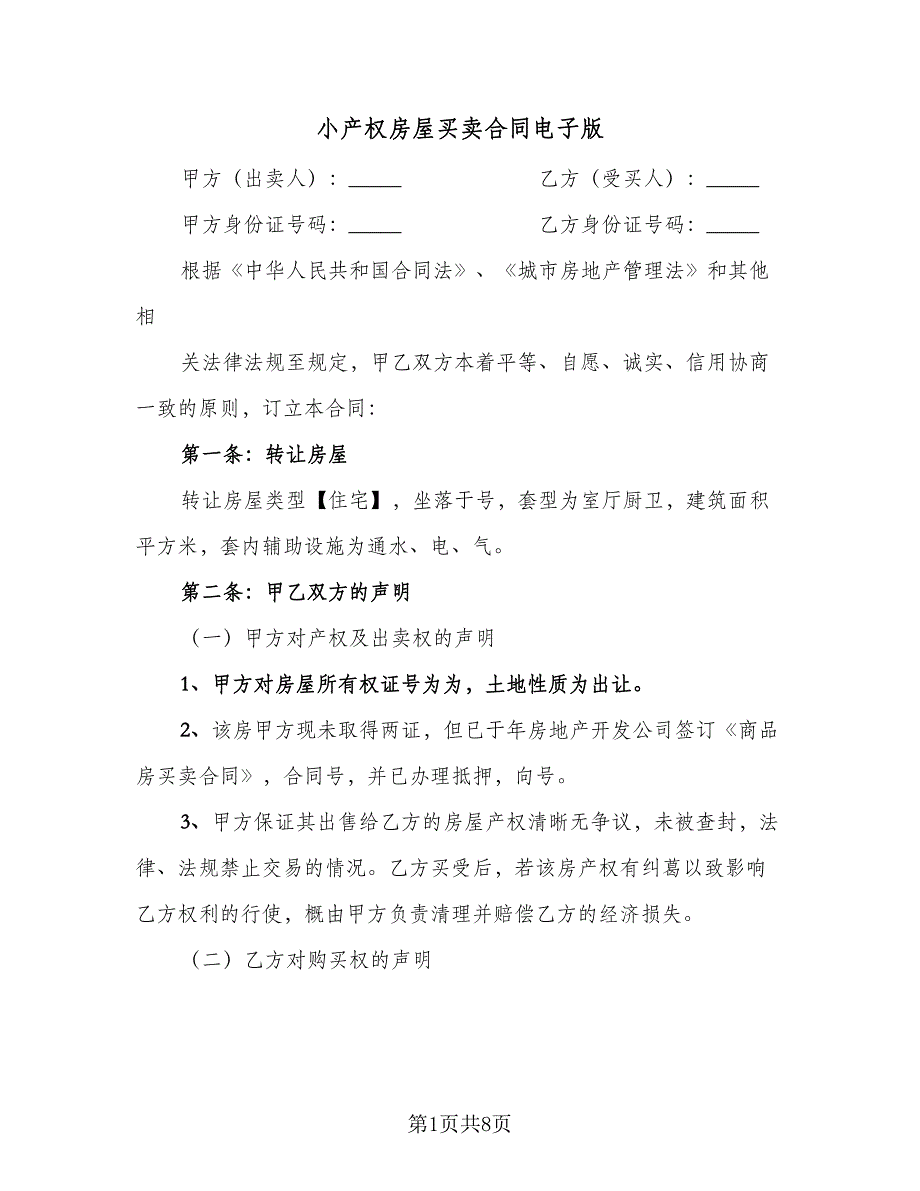 小产权房屋买卖合同电子版
甲方（出卖人）：_____ 乙方（受买人）：_____
甲方身份证号码：_____ 乙方身份证号码：_____
根据《中华人民共和国合同法》、《城市房地产管理法》和其他
相
关法律法规至规定，甲乙双方本着平等、自愿、诚实、信用协商
一致的原则，订立本合同：
第一条：转让房屋
转让房屋类型【住宅】，坐落于号，套型为室厅厨卫，建筑面积
平方米，套内辅助设施为通水、电、气。
第二条：甲乙双方的声明
（一）甲方对产权及出卖权的声明
1、甲方对房屋所有权证号为为，土地性质为出让。
2、该房甲方现未取得两证，但已于年房地产开发公司签订《商品
房买卖合同》，合同号，并已办理抵押，向号。
3、甲方保证其出售给乙方的房屋产权清晰无争议，未被查封，法
律、法规禁止交易的情况。乙方买受后，若该房产权有纠葛以致影响
乙方权利的行使，概由甲方负责清理并赔偿乙方的经济损失。
（二）乙方对购买权的声明
第1页共8页